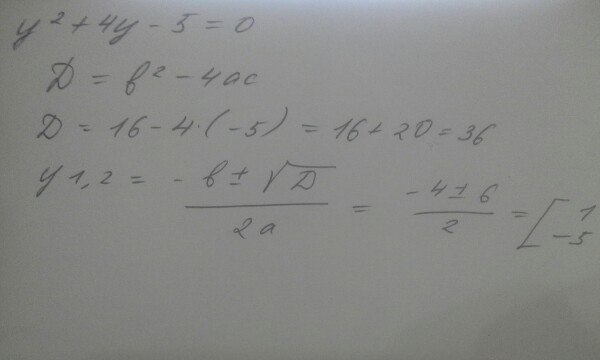 y² + 4y - 5 = 0
D = b² - 4ac
D = 16 - 4·(-5) = 16 + 20 = 36
y 1,2 = (-b ± √D) / 2a = (-4 ± 6) / 2 = [ 1
-5